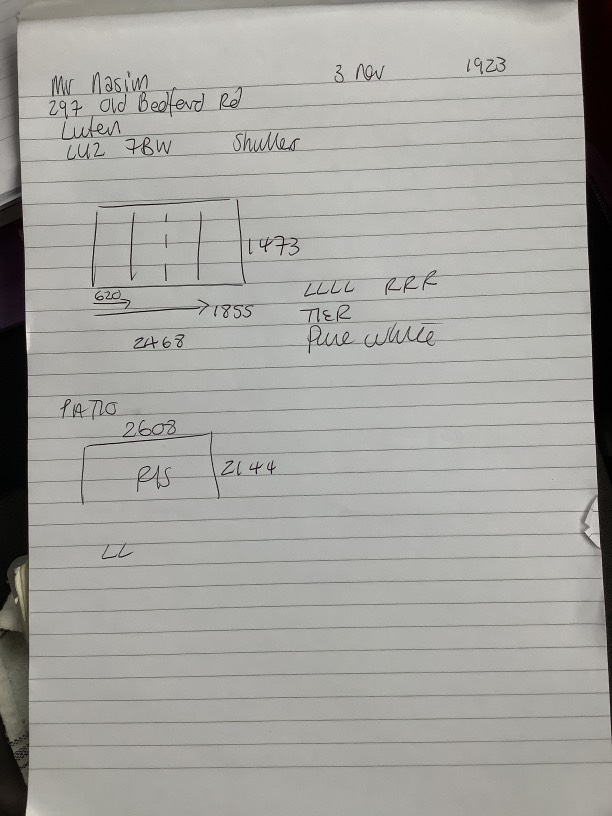 Mr Nasim 3 Nov 1923
297 Old Bedford Rd
Luton
LU2 7BW Shutter
1473
620
1855
2468
LLLL RRR
TIER
Pure white
PATIO
2608
2144
LL